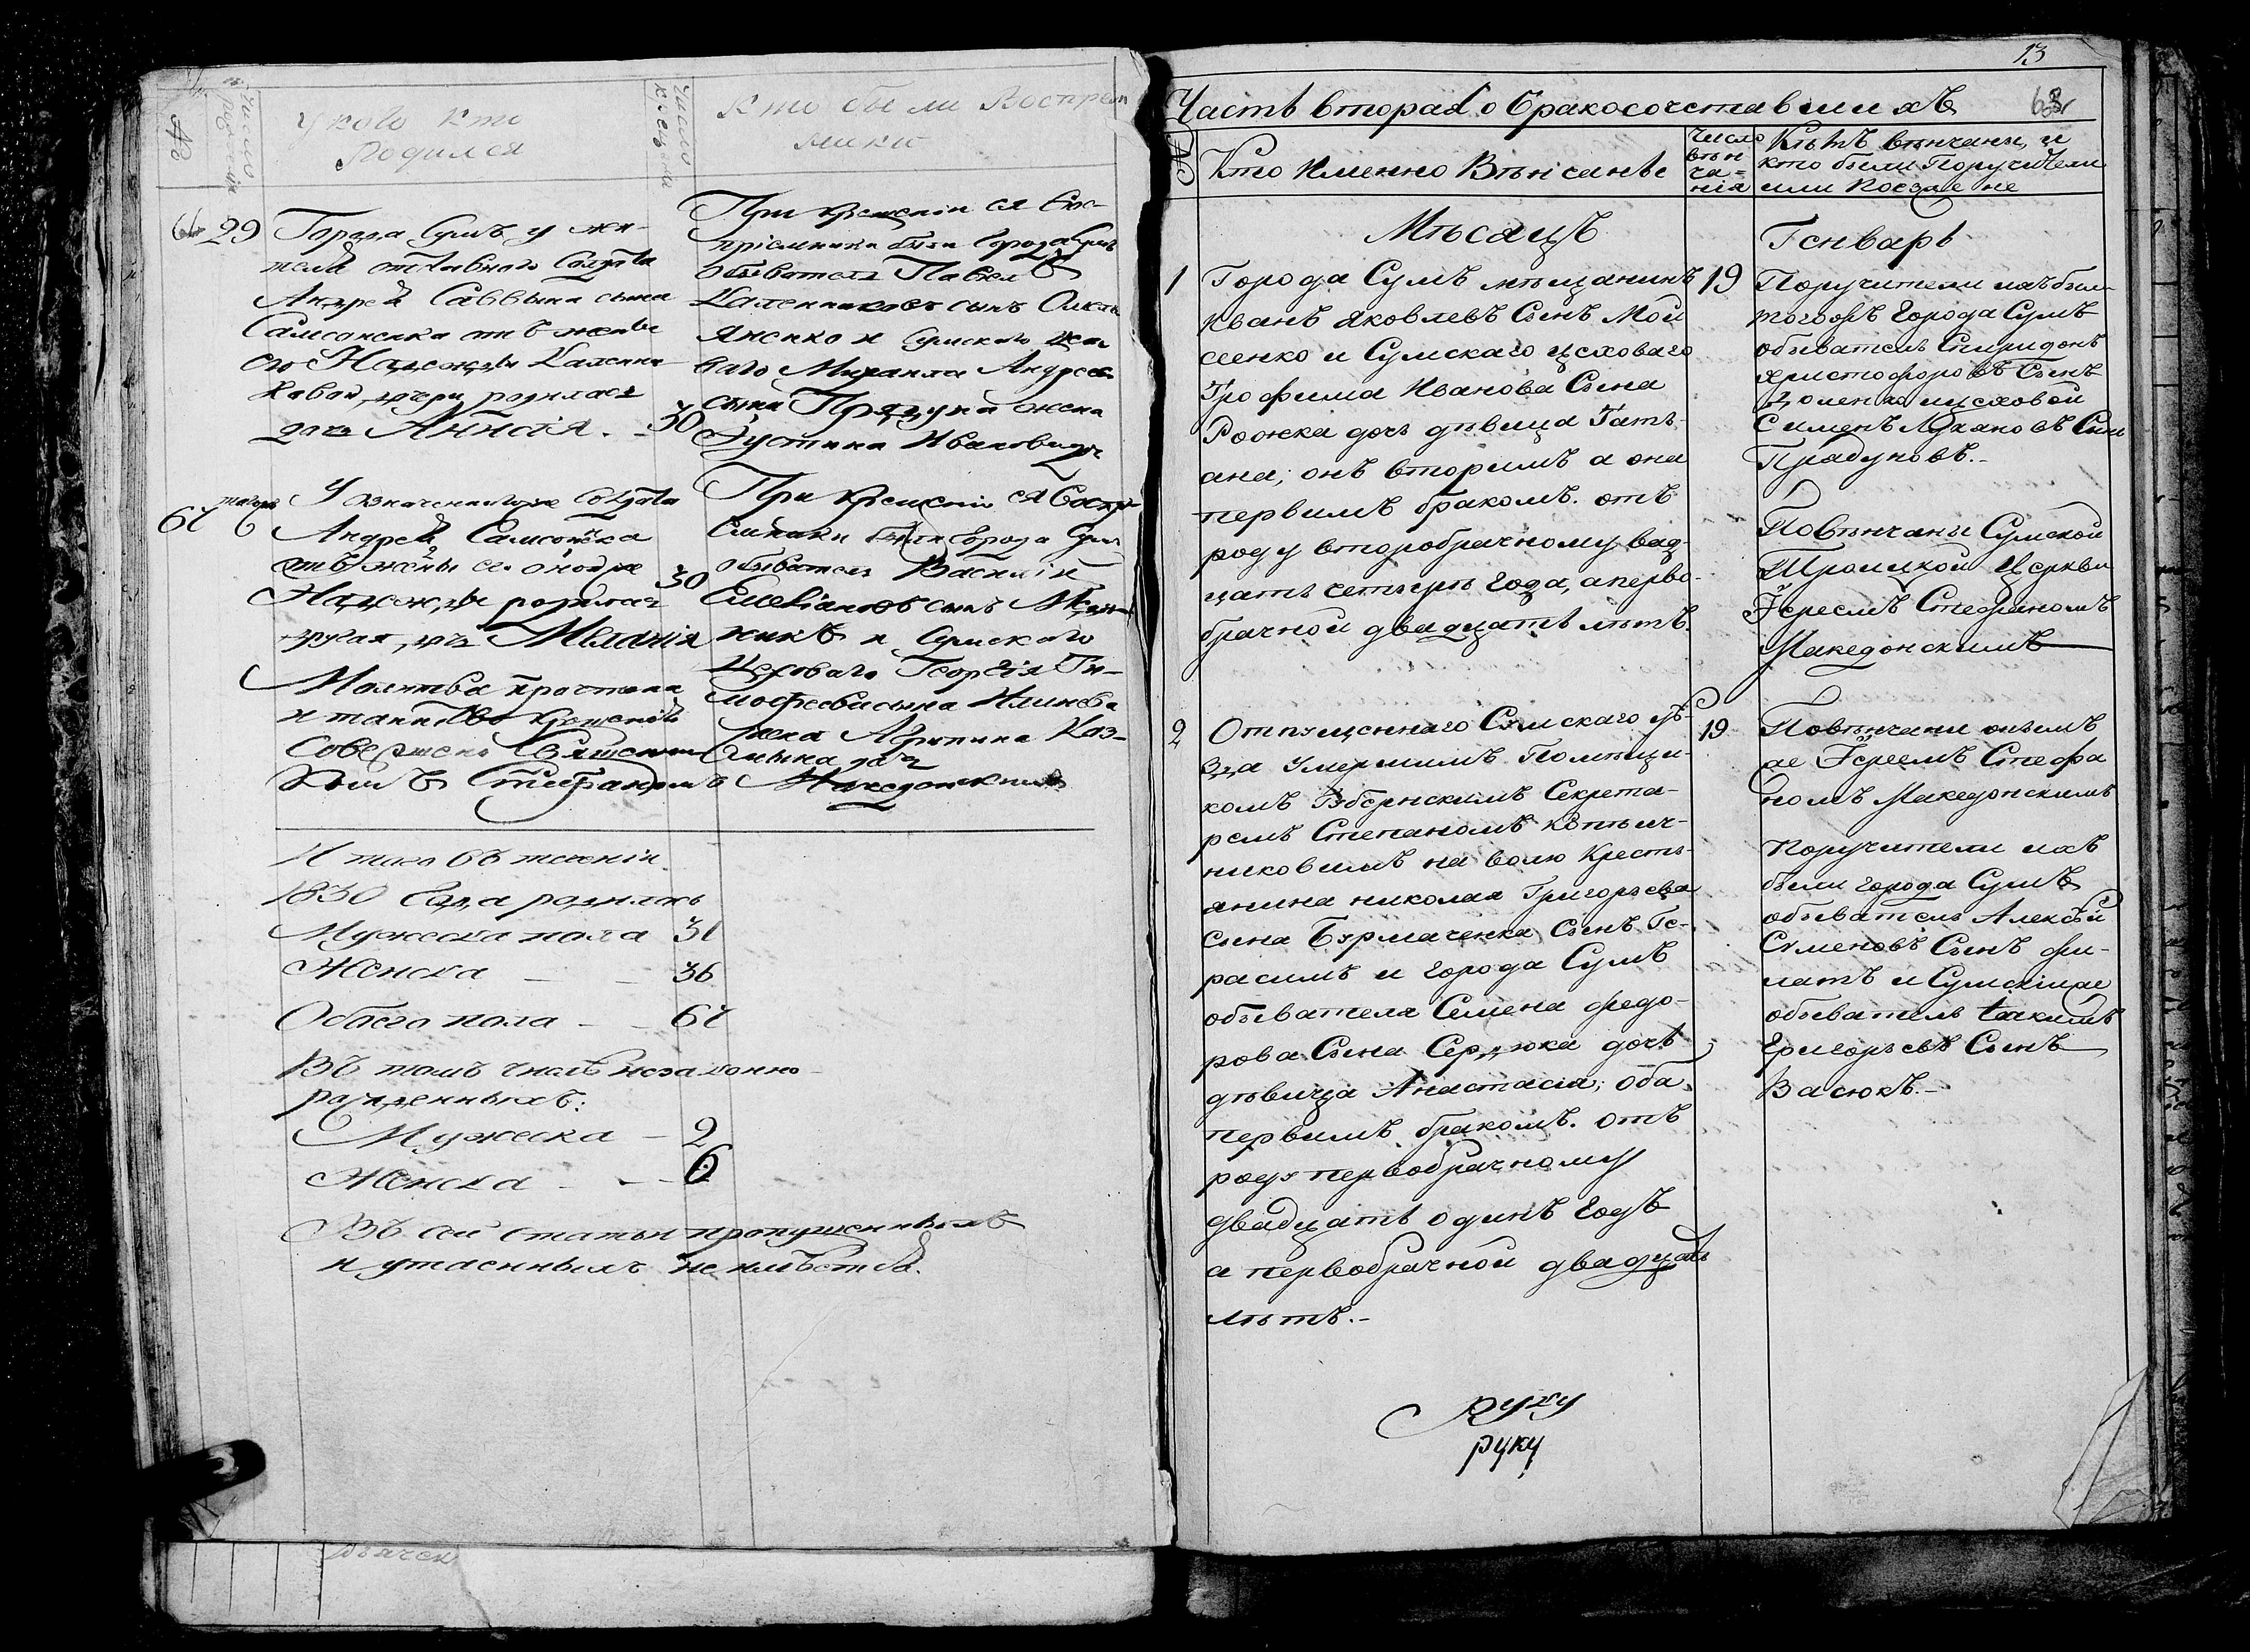 №
Число рожденія
У кого кто
Родился
Число крещенія
Кто были Воспріем
ники
66 29
Города Сумъ у жи-
теля отставного Солдата
Андрея Саввина сына
Самсоненка отъ жены
его Надежды
дочь родилась
дочь Анисія. - 30
При крещеніи ея Вос-
пріемники были Города Сумъ
обыватель Павелъ
сынъ Омель
яненко и Сумского цехо
ваго Михаила Андреева
сына Прядуна жена
Іустина Иванова дочь
67 тогожъ
У означеннагоже Солдата
Андрея Самсоненка
отъ жены его оной же 30
Надежды родилась
другая дочь Меланія
Молитва прочтена
и таинство крещенія
совершено Священни
комъ Стефаномъ Македонскимъ
При крещеніи ея Воспрі
емники были города Сумъ
обыватель Василій
Емеліановъ сынъ
никъ и Сумского
Цеховаго Георгія Ти-
мофеева сына
жена Агрипина Коз-
мина дочь
Итого въ теченіи
1830 Года родилось
Мужеска пола 31
Женска - - 36
Обоего пола - - 67
Въ томъ числѣ незаконно
рожденныхъ:
Мужеска - 2
Женска - - - 6
Въ сей статьи пропущенныхъ
и утаенныхъ не имѣется.
13
68
Часть вторая о Бракосочетавшихъ
№
Кто Именно Вѣнчанъ
Число вѣн ча= нія
Кѣмъ вѣнчаны, и
кто были Поручители
или Поезжане
Мѣсяцъ
Генварь
1 Города Сумъ мѣщанинъ 19
Иванъ Яковлевъ Сынъ Мой
сеенко и Сумскаго цеховаго
Трофима Иванова Сына
Рожка дочь дѣвица Тать-
яна; онъ вторимъ а она
первимъ бракомъ. отъ
роду второбрачному двад-
цать четыре года, а перво-
брачной двадцать лѣтъ.
Поручители ихъ были
тогожъ Города Сумъ
обыватель Спиридонъ
Христофоровъ Сынъ
и цеховой
Сименъ Сынъ
Прадуновъ.-
Повѣнчаны Сумской
Троицкой Церкви
Іереемъ Стефаномъ
Македонскимъ
2 Отпущеннаго Сумскаго уѣ- 19
зда Умершимъ Помѣщи-
комъ Губернскимъ Секрета-
ремъ Степаномъ
никовимъ на волю Кресть-
янина николая Григорьева
Сына Бурмаченка Сынъ Ге-
расимъ и города Сумъ
обывателя Семена Федо-
рова Сына Сердюка дочь
дѣвица Анастасія; оба
первимъ бракомъ. отъ
роду первобрачному
двадцать одинъ годъ
а первобрачной двадцать
лѣтъ.-
Повѣнчани онымъ
же Іереемъ Стефа
номъ Македонскимъ
Поручители ихъ
были города Сумъ
обыватель Алексѣй
Сименовъ Сынъ Фи-
латъ и Сумскійже
обыватель Іакимъ
Григорьевъ Сынъ
Васюкъ.-
руку
руку